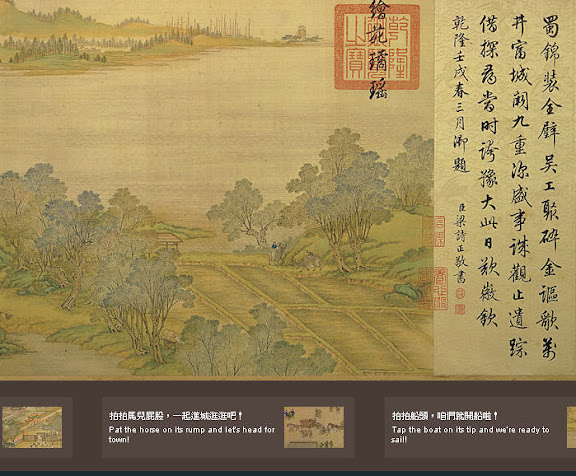 蜀錦裝全璧吳工聚碎金謳歌萬
井富城闕九重深盛事誠觀止遺踪
借探尋當時誇豫大此日歎徽欽
乾隆壬戌春三月御題
臣梁詩正敬書
繪苑璚瑤
乾隆之寶
拍拍馬兒屁股，一起進城逛逛吧！
Pat the horse on its rump and let's head for
town!
拍拍船頭，咱們就開船啦！
Tap the boat on its tip and we're ready to
sail!